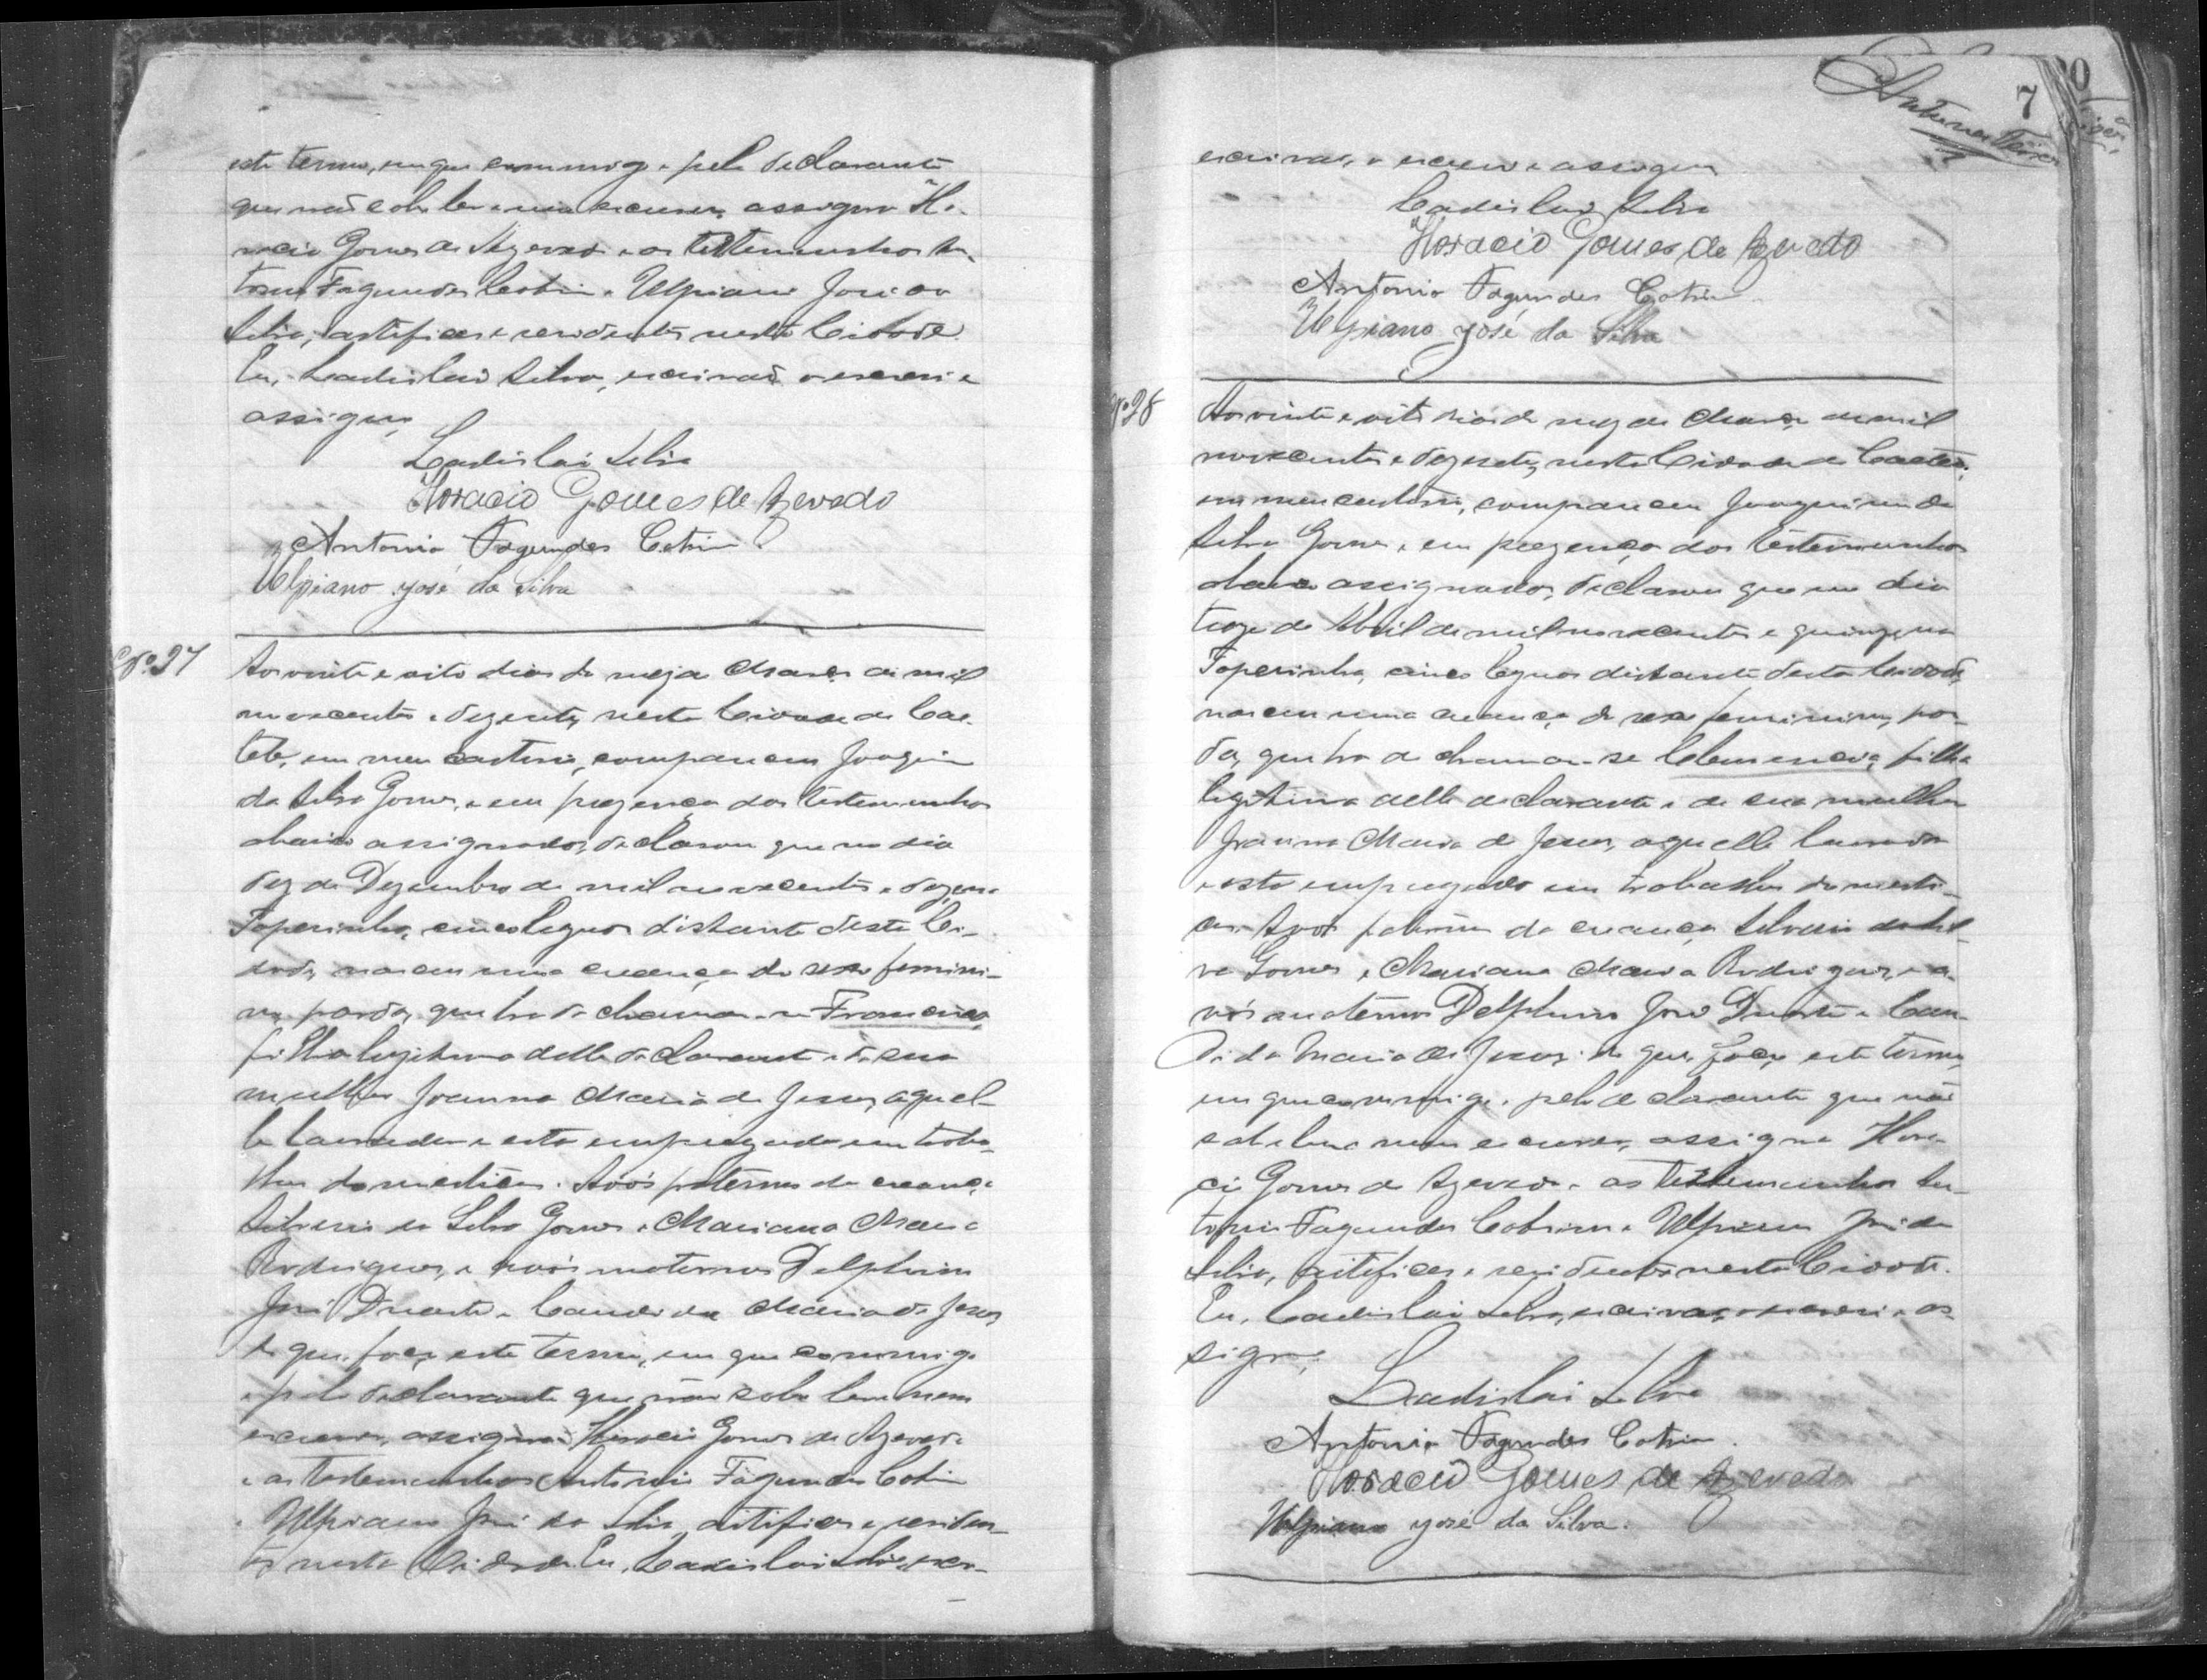 este termo, em que commigo e pelo declarante
que não sabe ler e nem escrever, assigna Ho-
racio Gomes de Azevedo e as testemunhas An-
tonio Fagundes Cotrim e Ulpiano José da
Silva, artifices e residentes nesta Cidade.
Eu, Ladislau Silva, escrivão o escrevi e
assigno,
Ladislau Silva
Horacio Gomes de Azevedo
Antonio Fagundes Cotrim.
Ulpiano José da Silva
Nº 27
Aos vinte e oito dias do mez de Março de mil
novecentos e dezesete, nesta Cidade de Cae-
teté, em meu cartorio, compareceu Joaquim
da Silva Gomes, e em prezença das testemunhas
abaixo assignadas, declarou que no dia
dez de Dezembro de mil novecentos e
Taperinha, cinco leguas distante desta Ci-
dade, nasceu uma creança do sexo femini-
no, parda, que ha de chamar-se
filha legitima delle declarante e de sua
mulher Joanna Maria de Jesus, aquel-
le lavrador e esta empregada em traba-
lhos domesticos. Avós paternos da creança
Silverio da Silva Gomes e Mariana Maria
Rodrigues, e avós maternos Delphino
José Duarte e Candida Maria de Jesus,
do que, faço este termo, em que commigo
e pelo declarante que não sabe ler e nem
escrever, assigna Horacio Gomes de Azevedo
e as testemunhas Antonio Fagundes Cotrim
e Ulpiano José da Silva, artifices e residen-
tes nesta Cidade. Eu, Ladislau Silva, escri-
7
escrivão, o escrevi e assigno
Ladislau Silva
Horacio Gomes de Azevedo
Antonio Fagundes Cotrim.
Ulpiano José da Silva
Nº 28
Aos vinte e oito dias do mez de Março de mil
novecentos e dezesete, nesta Cidade de Caeteté,
em meu cartorio, compareceu Joaquim da
Silva Gomes, e em prezença das testemunhas
abaixo assignadas, declarou que no dia
treze de Abril de mil novecentos e quinze, na
Taperinha, cinco leguas distante desta Cidade,
nasceu uma creança do sexo feminino, par-
da, que ha de chamar-se Clemencia, filha
legitima delle declarante e de sua mulher
Joanna Maria de Jesus, aquelle lavrador
e esta empregada em trabalhos domesti-
cos. Avós paternos da creança Silverio da Sil-
va Gomes e Mariana Maria Rodrigues, e a-
vós maternos Delphino José Duarte e Can-
dida Maria de Jesus; do que, faço este termo,
em que commigo e pelo declarante que não
sabe ler e nem escrever, assigna Hora-
cio Gomes de Azevedo e as testemunhas An-
tonio Fagundes Cotrim e Ulpiano José da
Silva, artifices e residentes nesta Cidade.
Eu, Ladislau Silva, escrivão, o escrevi e as-
signo,
Ladislau Silva
Antonio Fagundes Cotrim.
Horacio Gomes de Azevedo
Ulpiano José da Silva.